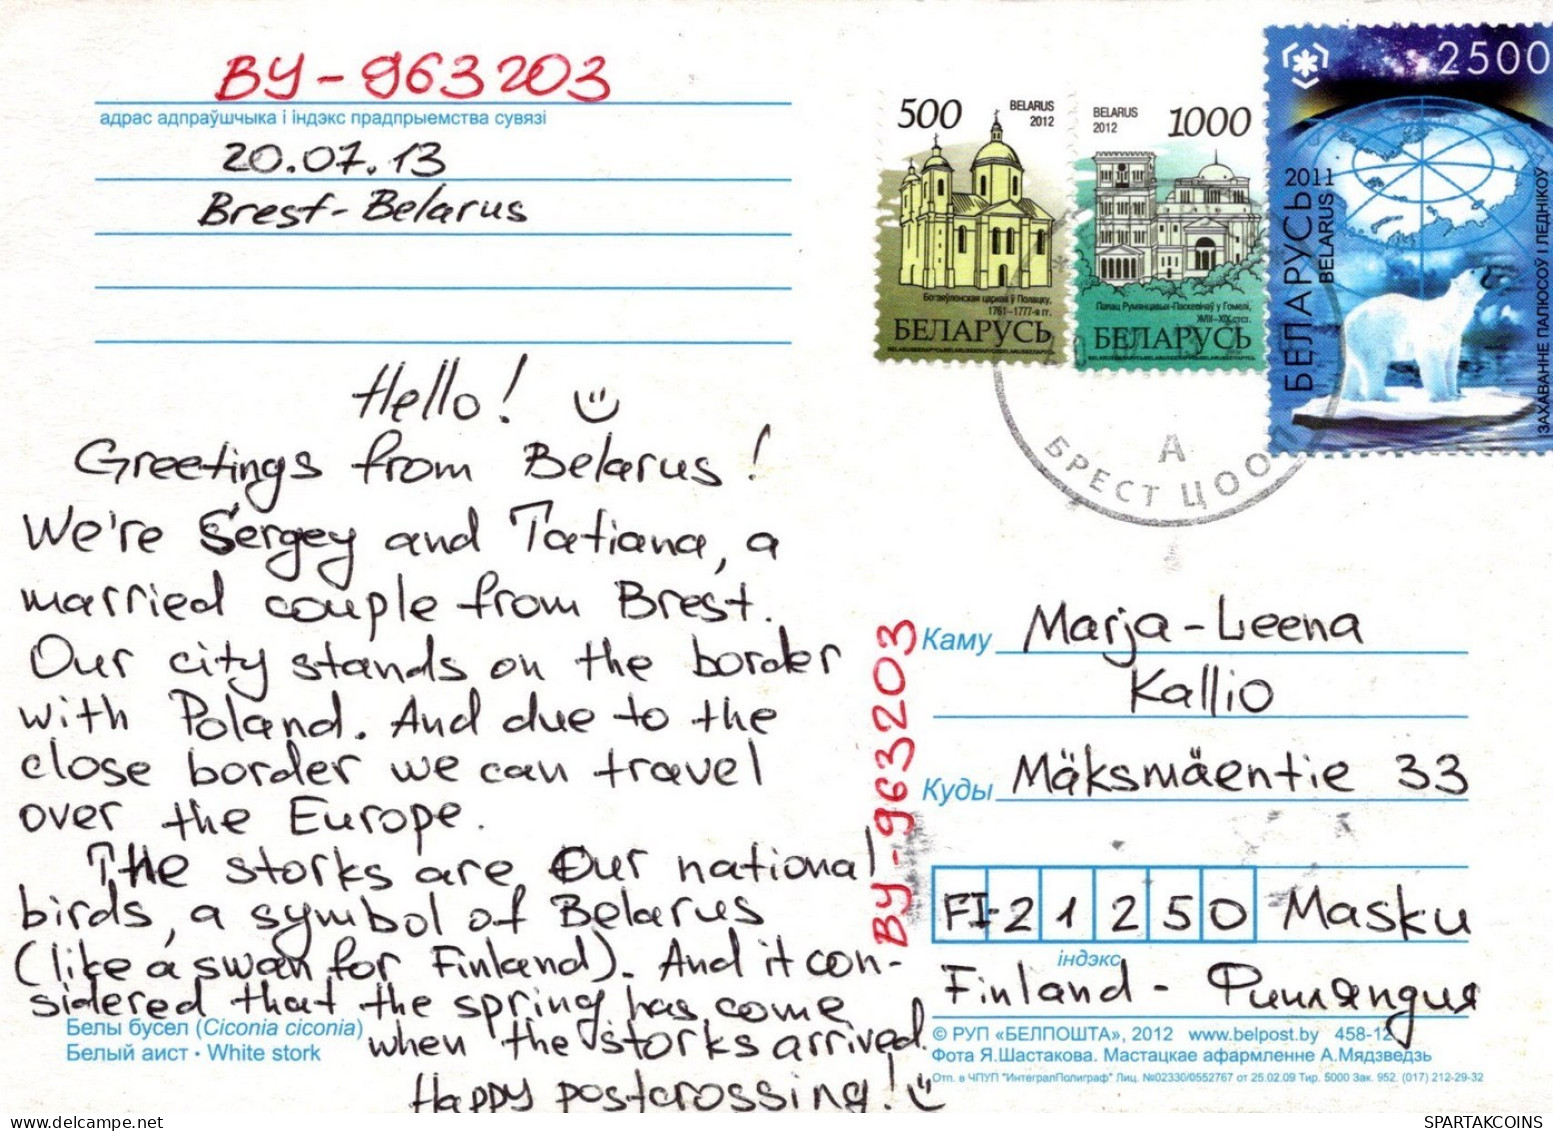 BY-963203
адрас адпраўшчыка і індэкс прадпрыемства сувязі
20.07.13
Brest-Belarus
500
BELARUS
2012
Богаяўленская царква ў Полацку,
1761–1777-я гг.
БЕЛАРУСЬ
BELARUS
2012
1000
Палац Румянцавых-Паскевічаў у Гомелі,
XVIII–XIX стст.
БЕЛАРУСЬ
2500
2011
БЕЛАРУСЬ
BELARUS
ЗАХАВАННЕ ПАЛЮСОЎ І ЛЕДНІКОЎ
А
БРЕСТ ЦОО
Hello!
Greetings from Belarus!
We're Sergey and Tatiana, a
married couple from Brest.
Our city stands on the border
with Poland. And due to the
close border we can travel
over the Europe.
The storks are our national
birds, a symbol of Belarus
(like a swan for Finland). And it con-
sidered that the spring has come
when the storks arrived.
Happy postcrossing!
Белы бусел (Ciconia ciconia)
Белый аист • White stork
BY-963203
Каму Marja-Leena
Kallio
Куды Mäksmäentie 33
FI-21250 Masku
індэкс
Finland - Финляндия
© РУП «БЕЛПОШТА», 2012 www.belpost.by 458-12
Фота Я.Шастакова. Мастацкае афармленне А.Мядзведзь
Отп. в ЧПУП "ИнтегралПолиграф" Лиц. №02330/0552767 от 25.02.09 Тир. 5000 Зак. 952. (017) 212-29-32
SPARTAKCOINS